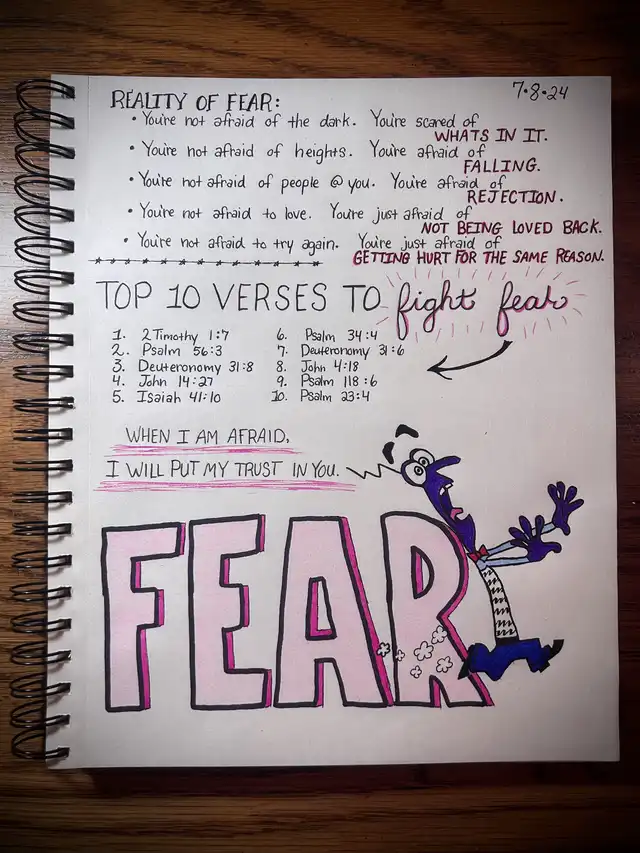 7•8•24
REALITY OF FEAR:
• You're not afraid of the dark. You're scared of
WHATS IN IT.
• You're not afraid of heights. You're afraid of
FALLING.
• You're not afraid of people @ you. You're afraid of
REJECTION.
• You're not afraid to love. You're just afraid of
NOT BEING LOVED BACK.
• You're not afraid to try again. You're just afraid of
GETTING HURT FOR THE SAME REASON.
TOP 10 VERSES TO fight fear
1. 2 Timothy 1:7
2. Psalm 56:3
3. Deuteronomy 31:8
4. John 14:27
5. Isaiah 41:10
6. Psalm 34:4
7. Deuteronomy 31:6
8. John 4:18
9. Psalm 118:6
10. Psalm 23:4
WHEN I AM AFRAID,
I WILL PUT MY TRUST IN YOU.
FEAR